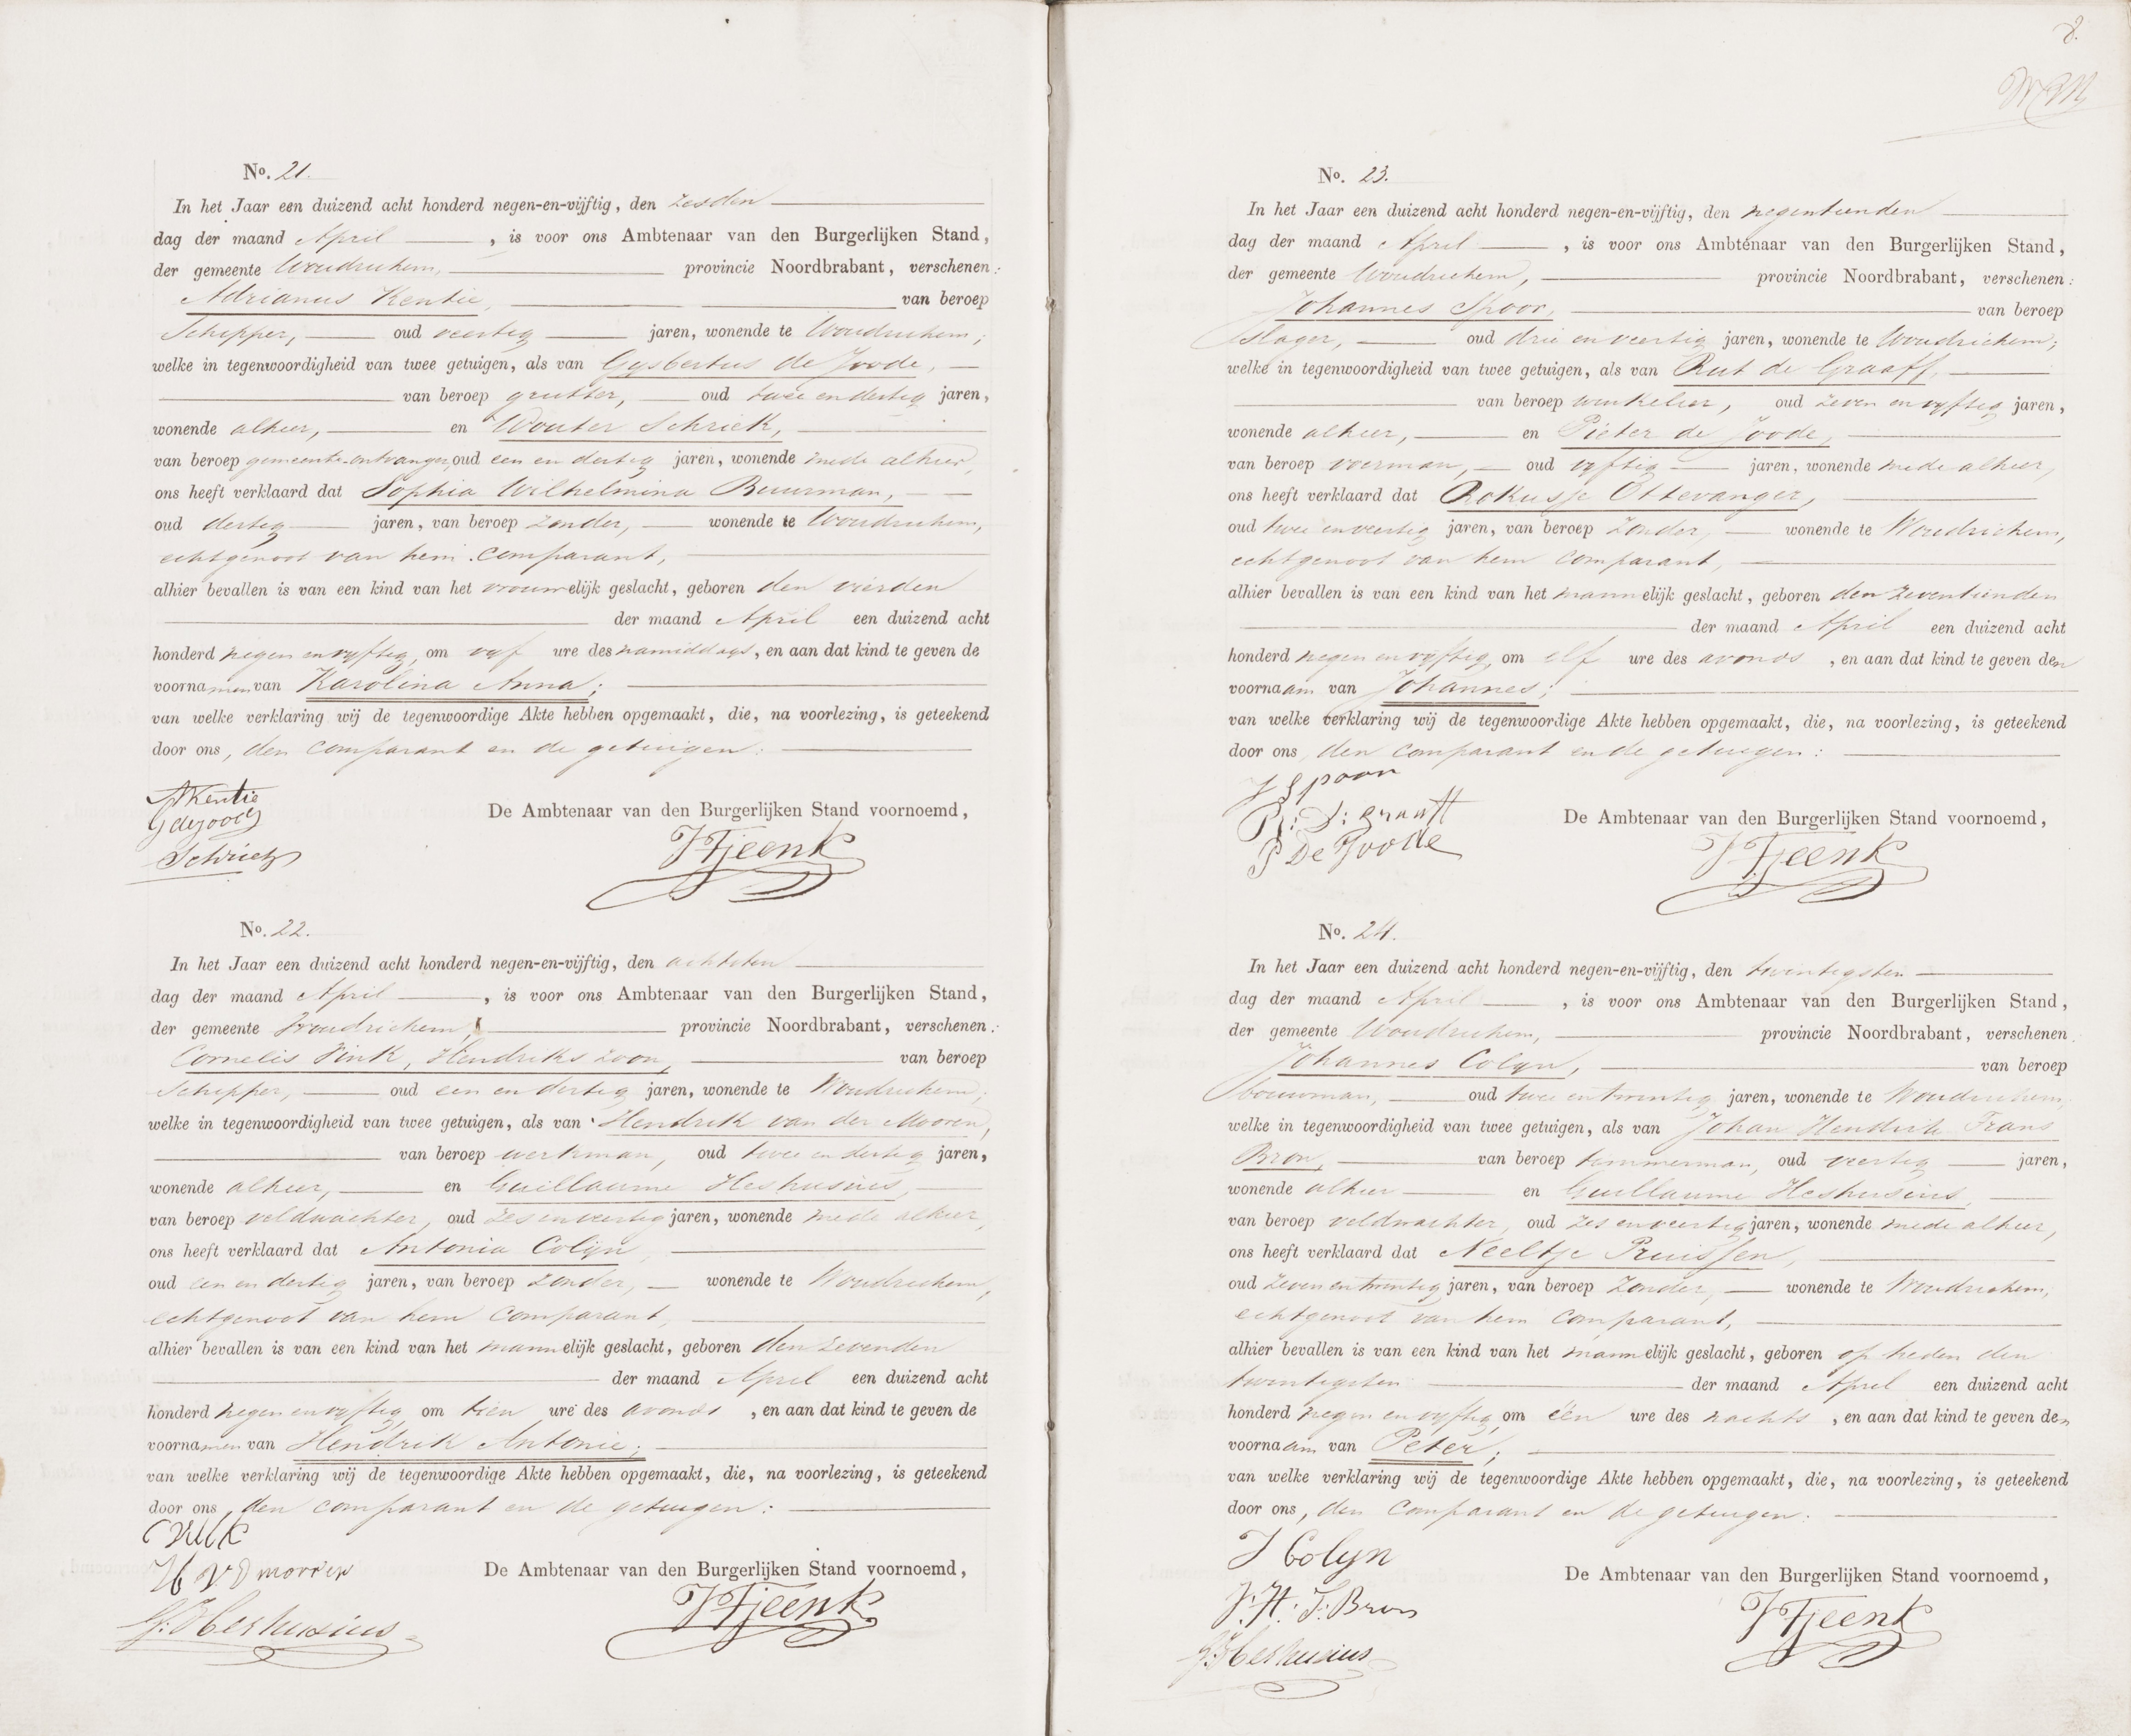 No. 21.
In het Jaar een duizend acht honderd negen-en-vijftig, den zesden
dag der maand April, is voor ons Ambtenaar van den Burgerlijken Stand,
der gemeente Woudrichem, provincie Noordbrabant, verschenen:
Adrianus Kentie, van beroep
Schipper, oud veertig jaren, wonende te Woudrichem;
welke in tegenwoordigheid van twee getuigen, als van Gysbertus de Joode,
van beroep grutter, oud twee en dertig jaren,
wonende alhier, en Wouter Schriek,
van beroep gemeente-ontvanger, oud een en dertig jaren, wonende mede alhier,
ons heeft verklaard dat Sophia Wilhelmina Buurman,
oud dertig jaren, van beroep zonder, wonende te Woudrichem,
echtgenoot van hem comparant,
alhier bevallen is van een kind van het vrouwelijk geslacht, geboren den vierden
der maand April een duizend acht
honderd negen en vyftig, om vyf ure des namiddags, en aan dat kind te geven de
voornamen van Karolina Anna;
van welke verklaring wij de tegenwoordige Akte hebben opgemaakt, die, na voorlezing, is geteekend
door ons, den comparant en de getuigen:
AKentie
G de Joode
Schriek
De Ambtenaar van den Burgerlijken Stand voornoemd,
JTjeenk
No. 22.
In het Jaar een duizend acht honderd negen-en-vijftig, den achtsten
dag der maand April, is voor ons Ambtenaar van den Burgerlijken Stand,
der gemeente Woudrichem, provincie Noordbrabant, verschenen:
Cornelis Vink, Hendriks zoon, van beroep
Schipper, oud een en dertig jaren, wonende te Woudrichem;
welke in tegenwoordigheid van twee getuigen, als van Hendrik van der Mooren,
van beroep werkman, oud twee en dertig jaren,
wonende alhier, en Guillaume Heshusius,
van beroep veldwachter, oud zes en veertig jaren, wonende mede alhier,
ons heeft verklaard dat Antonia Colijn,
oud een en dertig jaren, van beroep zonder, wonende te Woudrichem,
echtgenoot van hem comparant,
alhier bevallen is van een kind van het mannelijk geslacht, geboren den zevenden
der maand April een duizend acht
honderd negen en vyftig, om tien ure des avonds, en aan dat kind te geven de
voornamen van Hendrik Antonie;
van welke verklaring wij de tegenwoordige Akte hebben opgemaakt, die, na voorlezing, is geteekend
door ons, den comparant en de getuigen:
C Vink
H V D morren
G: Heshusius
De Ambtenaar van den Burgerlijken Stand voornoemd,
JTjeenk
8.
No. 23.
In het Jaar een duizend acht honderd negen-en-vijftig, den negentienden
dag der maand April, is voor ons Ambtenaar van den Burgerlijken Stand,
der gemeente Woudrichem, provincie Noordbrabant, verschenen:
Johannes Spoor, van beroep
Slager, oud drie en veertig jaren, wonende te Woudrichem;
welke in tegenwoordigheid van twee getuigen, als van Rut de Graaff,
van beroep winkelier, oud zeven en vyftig jaren,
wonende alhier, en Pieter de Joode,
van beroep voerman, oud vyftig jaren, wonende mede alhier,
ons heeft verklaard dat Rokusje Ottevanger,
oud twee en veertig jaren, van beroep zonder, wonende te Woudrichem,
echtgenoot van hem comparant,
alhier bevallen is van een kind van het mannelijk geslacht, geboren den zeventienden
der maand April een duizend acht
honderd negen en vyftig, om elf ure des avonds, en aan dat kind te geven den
voornaam van Johannes;
van welke verklaring wij de tegenwoordige Akte hebben opgemaakt, die, na voorlezing, is geteekend
door ons, den comparant en de getuigen:
J Spoor
R: D: Graaff
P De Joode
De Ambtenaar van den Burgerlijken Stand voornoemd,
JTjeenk
No. 24.
In het Jaar een duizend acht honderd negen-en-vijftig, den twintigsten
dag der maand April, is voor ons Ambtenaar van den Burgerlijken Stand,
der gemeente Woudrichem, provincie Noordbrabant, verschenen
Johannes Colyn, van beroep
bouwman, oud twee en twintig jaren, wonende te Woudrichem;
welke in tegenwoordigheid van twee getuigen, als van Johan Hendrik Frans
Bron, van beroep timmerman, oud veertig jaren,
wonende alhier en Guillaume Heshusius,
van beroep veldwachter, oud zes en veertig jaren, wonende mede alhier,
ons heeft verklaard dat Neeltje Pruissen,
oud zeven en twintig jaren, van beroep zonder, wonende te Woudrichem,
echtgenoot van hem comparant,
alhier bevallen is van een kind van het mannelijk geslacht, geboren op heden den
twintigsten der maand April een duizend acht
honderd negen en vyftig, om één ure des nachts, en aan dat kind te geven den
voornaam van Peter;
van welke verklaring wij de tegenwoordige Akte hebben opgemaakt, die, na voorlezing, is geteekend
door ons, den comparant en de getuigen:
J Colyn
J. H. F. Bron
G: Heshusius
De Ambtenaar van den Burgerlijken Stand voornoemd,
JTjeenk